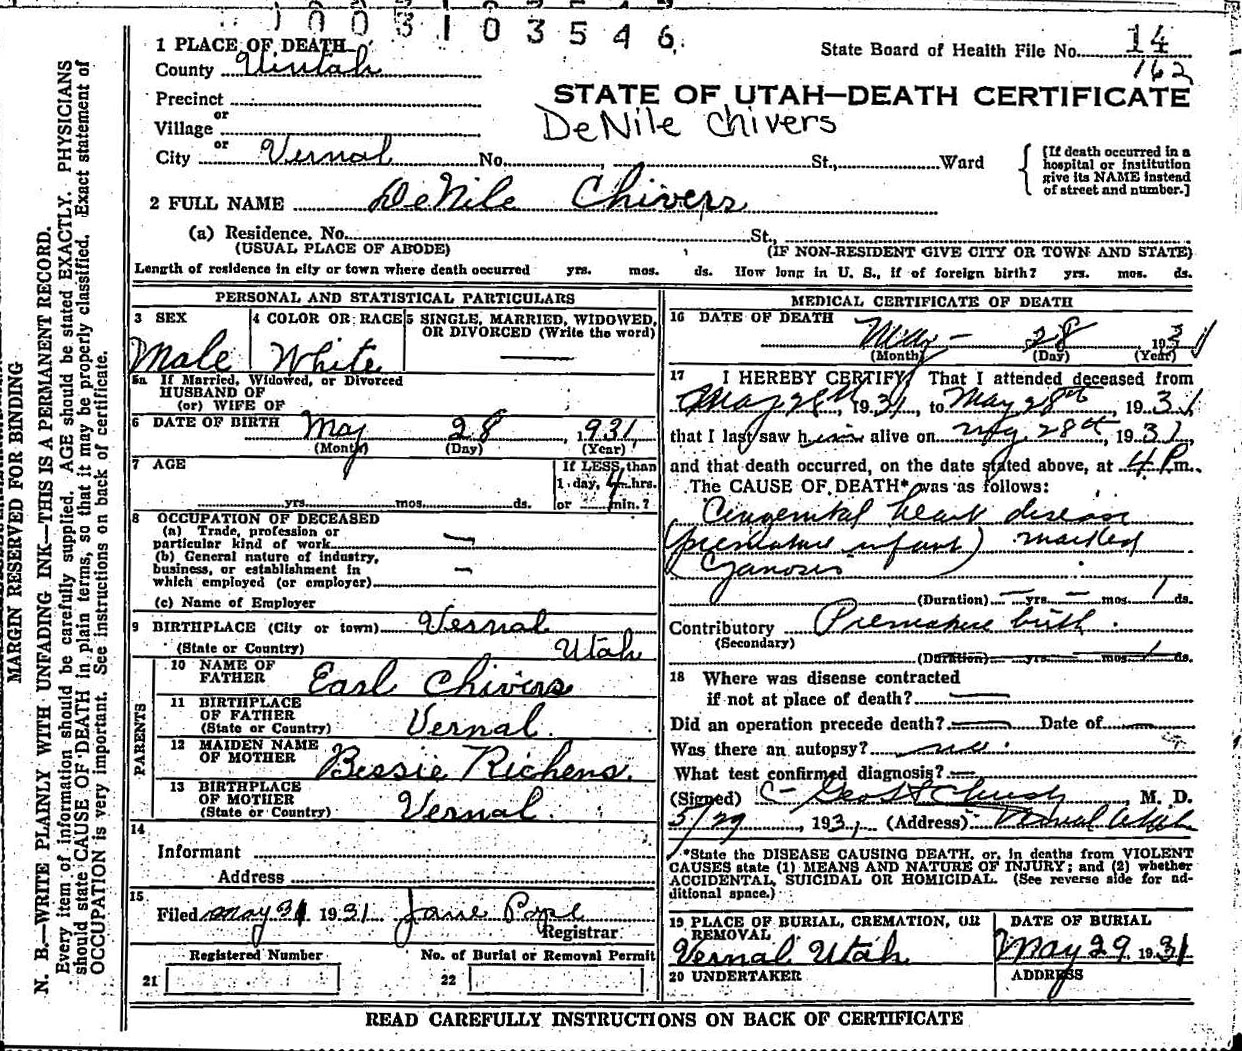 1003103546
1 PLACE OF DEATH
County Uintah
State Board of Health File No. 14
162
Precinct
or
Village
or
City Vernal No. St., Ward
STATE OF UTAH—DEATH CERTIFICATE
DeNile Chivers
[If death occurred in a
hospital or institution
give its NAME instead
of street and number.]
2 FULL NAME DeNile Chivers
(a) Residence. No. St.,
(USUAL PLACE OF ABODE) (IF NON-RESIDENT GIVE CITY OR TOWN AND STATE)
Length of residence in city or town where death occurred yrs. mos. ds. How long in U. S., if of foreign birth? yrs. mos. ds.
PERSONAL AND STATISTICAL PARTICULARS
3 SEX
Male
4 COLOR OR RACE
White
5 SINGLE, MARRIED, WIDOWED,
OR DIVORCED (Write the word)
5a If Married, Widowed, or Divorced
HUSBAND OF
(or) WIFE OF
6 DATE OF BIRTH May 28, 1931,
(Month) (Day) (Year)
7 AGE
yrs. mos. ds.
If LESS than
1 day, 4 hrs.
or min.?
8 OCCUPATION OF DECEASED
(a) Trade, profession or
particular kind of work —
(b) General nature of industry,
business, or establishment in
which employed (or employer) —
(c) Name of Employer
9 BIRTHPLACE (City or town) Vernal
(State or Country) Utah
PARENTS
10 NAME OF
FATHER Earl Chivers
11 BIRTHPLACE
OF FATHER
(State or Country) Vernal.
12 MAIDEN NAME
OF MOTHER Bessie Richens.
13 BIRTHPLACE
OF MOTHER
(State or Country) Vernal.
14
Informant
Address
15
Filed May 31 1931 Jane Pope
Registrar
Registered Number
21
No. of Burial or Removal Permit
22
MEDICAL CERTIFICATE OF DEATH
16 DATE OF DEATH
May — 28 1931
(Month) (Day) (Year)
17 I HEREBY CERTIFY, That I attended deceased from
May 28th, 1931, to May 28th, 1931
that I last saw him alive on May 28th, 1931,
and that death occurred, on the date stated above, at 4 P.m.
The CAUSE OF DEATH* was as follows:
Congenital heart disease
(premature infant) marked
Cyanosis
(Duration) — yrs. — mos. 1 ds.
Contributory Premature birth.
(Secondary)
(Duration) yrs. mos. 1 ds.
18 Where was disease contracted
if not at place of death?
Did an operation precede death? Date of
Was there an autopsy?
What test confirmed diagnosis?
(Signed) M. D.
5/29, 1931, (Address) Vernal Utah
*State the DISEASE CAUSING DEATH, or, in deaths from VIOLENT
CAUSES state (1) MEANS AND NATURE OF INJURY; and (2) whether
ACCIDENTAL, SUICIDAL OR HOMICIDAL. (See reverse side for ad-
ditional space.)
19 PLACE OF BURIAL, CREMATION, OR
REMOVAL
Vernal Utah
DATE OF BURIAL
May 29 1931
20 UNDERTAKER
ADDRESS
READ CAREFULLY INSTRUCTIONS ON BACK OF CERTIFICATE
MARGIN RESERVED FOR BINDING
N. B.—WRITE PLAINLY WITH UNFADING INK—THIS IS A PERMANENT RECORD.
Every item of information should be carefully supplied. AGE should be stated EXACTLY. PHYSICIANS
should state CAUSE OF DEATH in plain terms, so that it may be properly classified. Exact statement of
OCCUPATION is very important. See instructions on back of certificate.